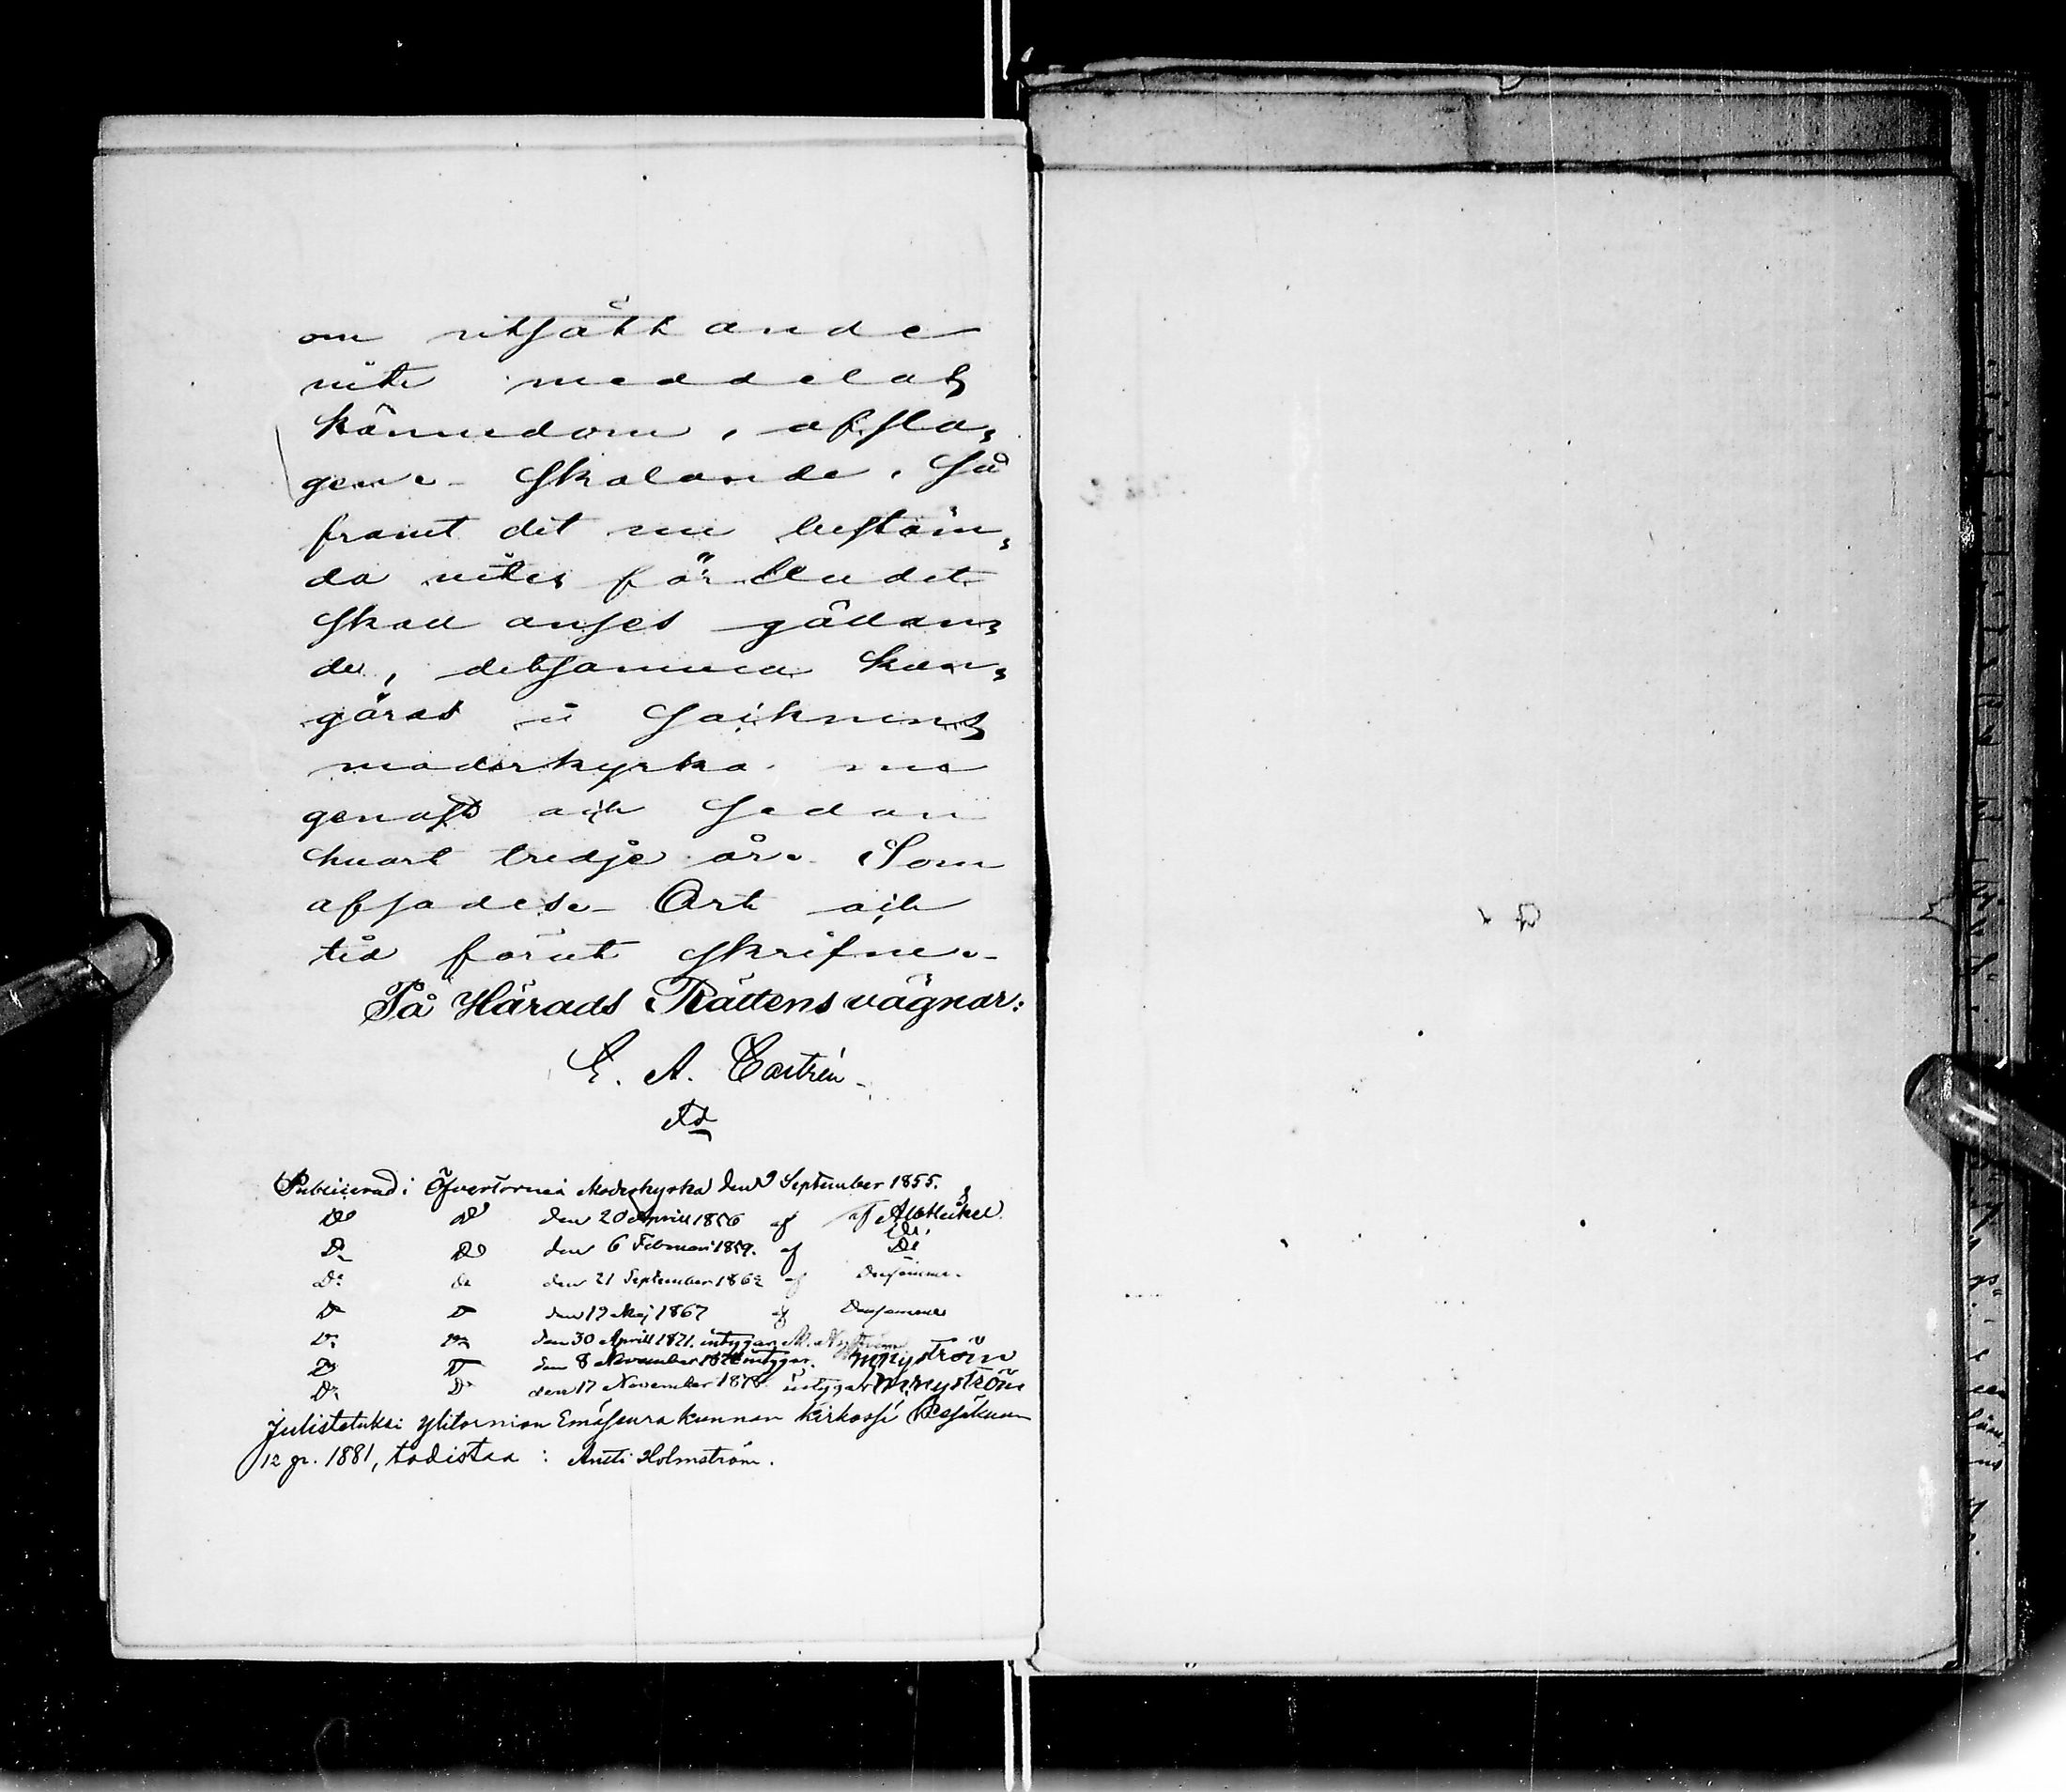 om utsättande
vite meddelats
kännedom, afsla-
gen. Skolande, så
framt det nu bestäm-
da vites förbudet
skall anses gällan-
de, detsamma kun-
göras i Socknens
moderkyrka nu
genast och sedan
hvart tredje år. Som
afsades. Ort och
tid förut skrifne.-
På Härads Rättens vägnar:
E. A. Castrén
Publicerad i Öfvertorneå Moderkyrka den 9 September 1855.
Do Do den 20 Aprill 1856 af
Do Do den 6 Februari 1859. af Do
Do Do den 21 September 1862 af Densamme.
Do Do den 19 Maj 1867 af Densamme
Do Do den 30 Aprill 1871. intygar M. Nyström
Do Do den 8 November intygar. M Nyström
Do Do den 17 November 1878. intygar M. Nyström
Julistetuksi Ylitornion Emäseurakunnan kirkossa Kesäkuun
12 p. 1881, todistaa : Antti Holmström.